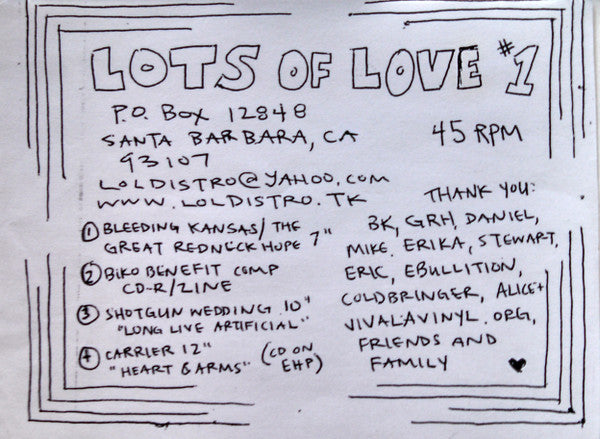 LOTS OF LOVE #1
P.O. BOX 12848
SANTA BARBARA, CA
93107
45 RPM
LOLDISTRO@YAHOO.COM
WWW.LOLDISTRO.TK
① BLEEDING KANSAS/THE
GREAT REDNECK HOPE 7"
② BIKO BENEFIT COMP
CD-R/ZINE
③ SHOTGUN WEDDING 10"
"LONG LIVE ARTIFICIAL"
④ CARRIER 12"
"HEART & ARMS" (CD ON
EHP)
THANK YOU:
BK, GRH, DANIEL,
MIKE. ERIKA, STEWART,
ERIC, EBULLITION,
COLDBRINGER, ALICE+
VIVALAVINYL.ORG,
FRIENDS AND
FAMILY ♥